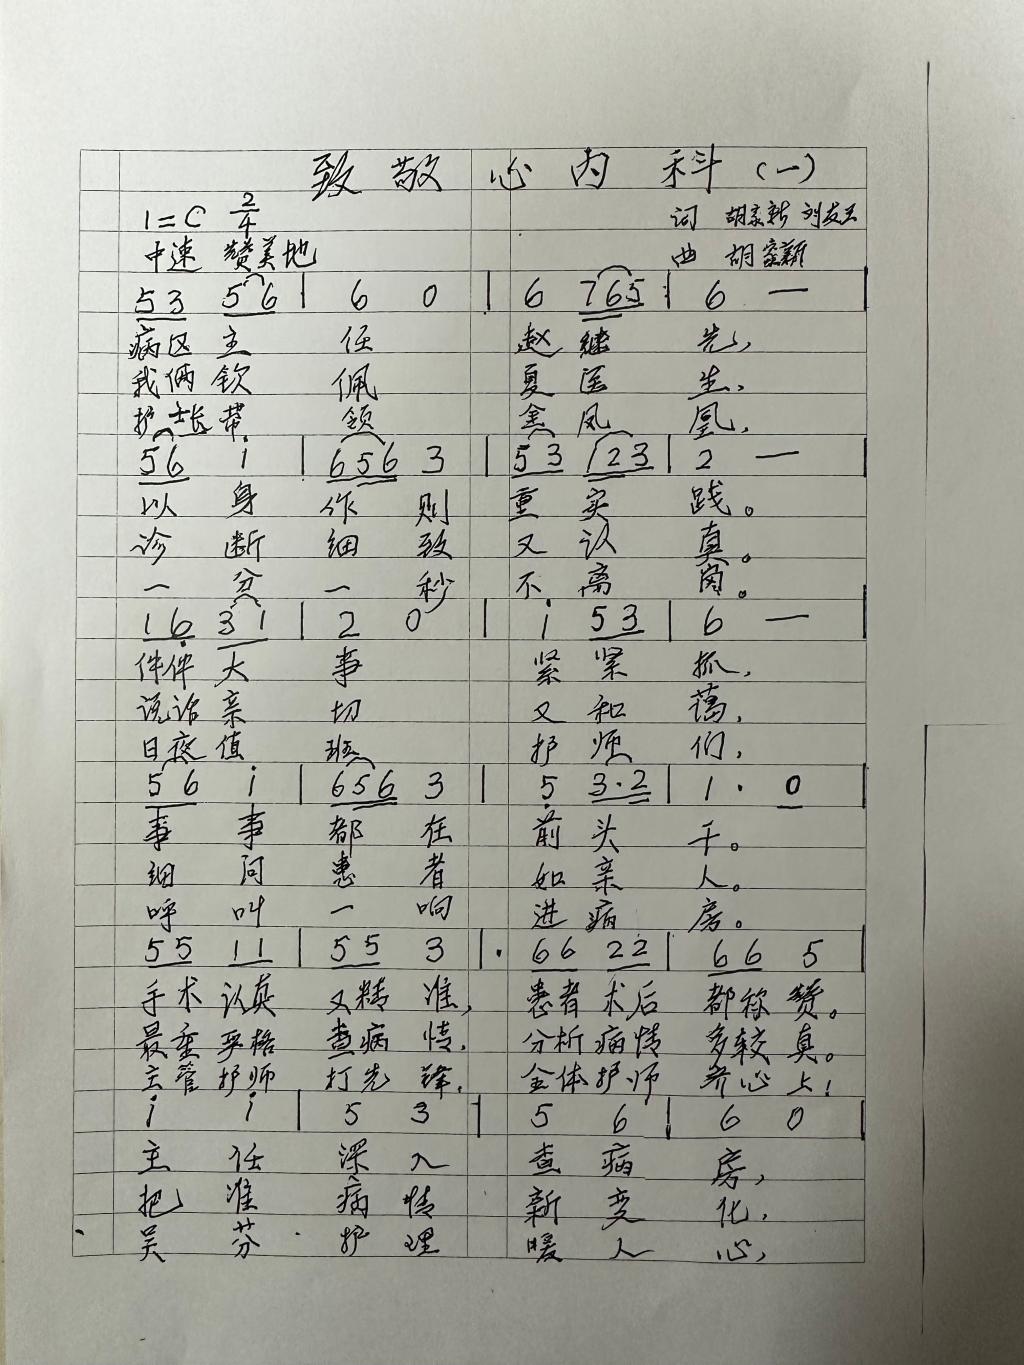 致敬心内科（一）
1=C 2/4 词 胡家新 刘友兰
中速 赞美地 曲 胡家新
53 56 | 6 0 | 6 765 | 6 — |
病区主任 赵继先，
我俩钦佩 夏医生，
护士长带领 金凤凰，
56 i | 656 3 | 53 123 | 2 — |
以身作则 重实践。
诊断细致 又认真。
一分一秒 不离岗。
16 31 | 2 0 | i 53 | 6 — |
件件大事 紧紧抓，
说话亲切 又和蔼，
日夜值班 护师们，
56 i | 656 3 | 5 3·2 | 1· 0 |
事事都在 前头干。
细问患者 如亲人。
呼叫一响 进病房。
55 11 | 55 3 | 66 22 | 66 5 |
手术认真 又精准， 患者术后 都称赞。
最重严格 查病情， 分析病情 多较真。
主管护师 打先锋， 全体护师 齐心上！
i i | 5 3 | 5 6 | 6 0 |
主任深入 查病房，
把准病情 新变化，
吴芬护理 暖人心，